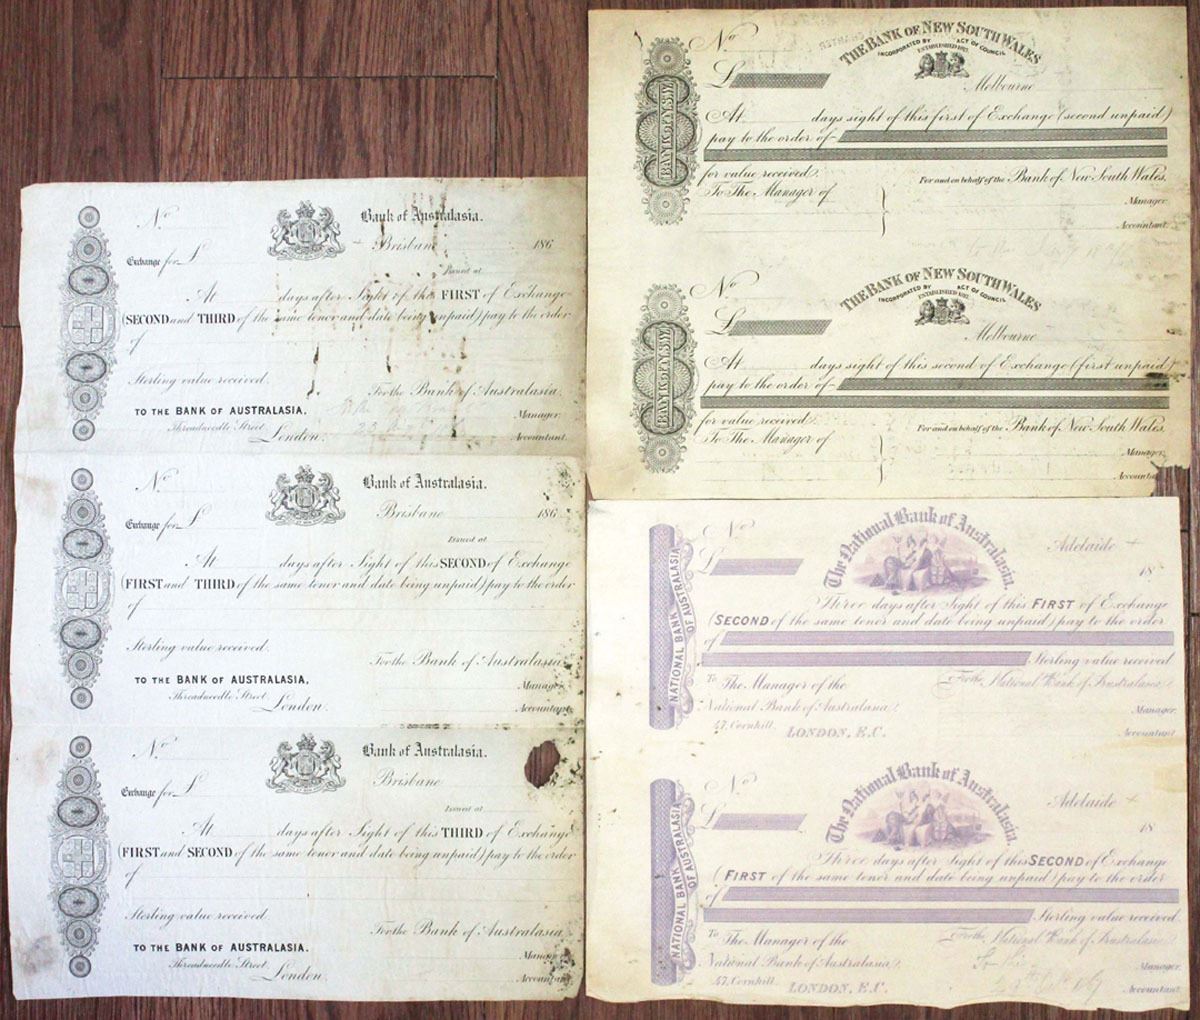 No
Bank of Australasia.
Brisbane 186
Exchange for £
Issued at
At days after Sight of this FIRST of Exchange
(SECOND and THIRD of the same tenor and date being unpaid) pay to the order
of
Sterling value received.
For the Bank of Australasia.
TO THE BANK OF AUSTRALASIA,
Manager.
Threadneedle Street,
London.
Accountant.
No
Bank of Australasia.
Brisbane 186
Exchange for £
Issued at
At days after Sight of this SECOND of Exchange
(FIRST and THIRD of the same tenor and date being unpaid) pay to the order
of
Sterling value received.
For the Bank of Australasia.
TO THE BANK OF AUSTRALASIA,
Manager.
Threadneedle Street,
London.
Accountant.
No
Bank of Australasia.
Brisbane
Exchange for £
Issued at
At days after Sight of this THIRD of Exchange
(FIRST and SECOND of the same tenor and date being unpaid) pay to the order
of
Sterling value received.
For the Bank of Australasia.
TO THE BANK OF AUSTRALASIA.
Manager.
Threadneedle Street,
London.
Accountant.
BANK OF N.S.W.
No
THE BANK OF NEW SOUTH WALES
INCORPORATED BY ACT OF COUNCIL
ESTABLISHED 1817.
£
Melbourne
At days sight of this first of Exchange (second unpaid)
pay to the order of
for value received.
For and on behalf of the Bank of New South Wales.
To The Manager of
Manager.
Accountant.
BANK OF N.S.W.
No
THE BANK OF NEW SOUTH WALES
INCORPORATED BY ACT OF COUNCIL
ESTABLISHED 1817.
£
Melbourne
At days sight of this second of Exchange (first unpaid)
pay to the order of
for value received.
For and on behalf of the Bank of New South Wales.
To The Manager of
Manager.
Accountant.
NATIONAL BANK
OF AUSTRALASIA
No
The National Bank of Australasia.
Adelaide
£
18
Three days after Sight of this FIRST of Exchange
(SECOND of the same tenor and date being unpaid) pay to the order
of
Sterling value received
To The Manager of the
For the National Bank of Australasia.
National Bank of Australasia,
Manager.
47, Cornhill,
LONDON, E.C.
Accountant.
NATIONAL BANK
OF AUSTRALASIA
No
The National Bank of Australasia.
Adelaide
£
18
Three days after Sight of this SECOND of Exchange
(FIRST of the same tenor and date being unpaid) pay to the order
of
Sterling value received.
To The Manager of the
For the National Bank of Australasia.
National Bank of Australasia,
Manager.
47, Cornhill,
LONDON, E.C.
Accountant.